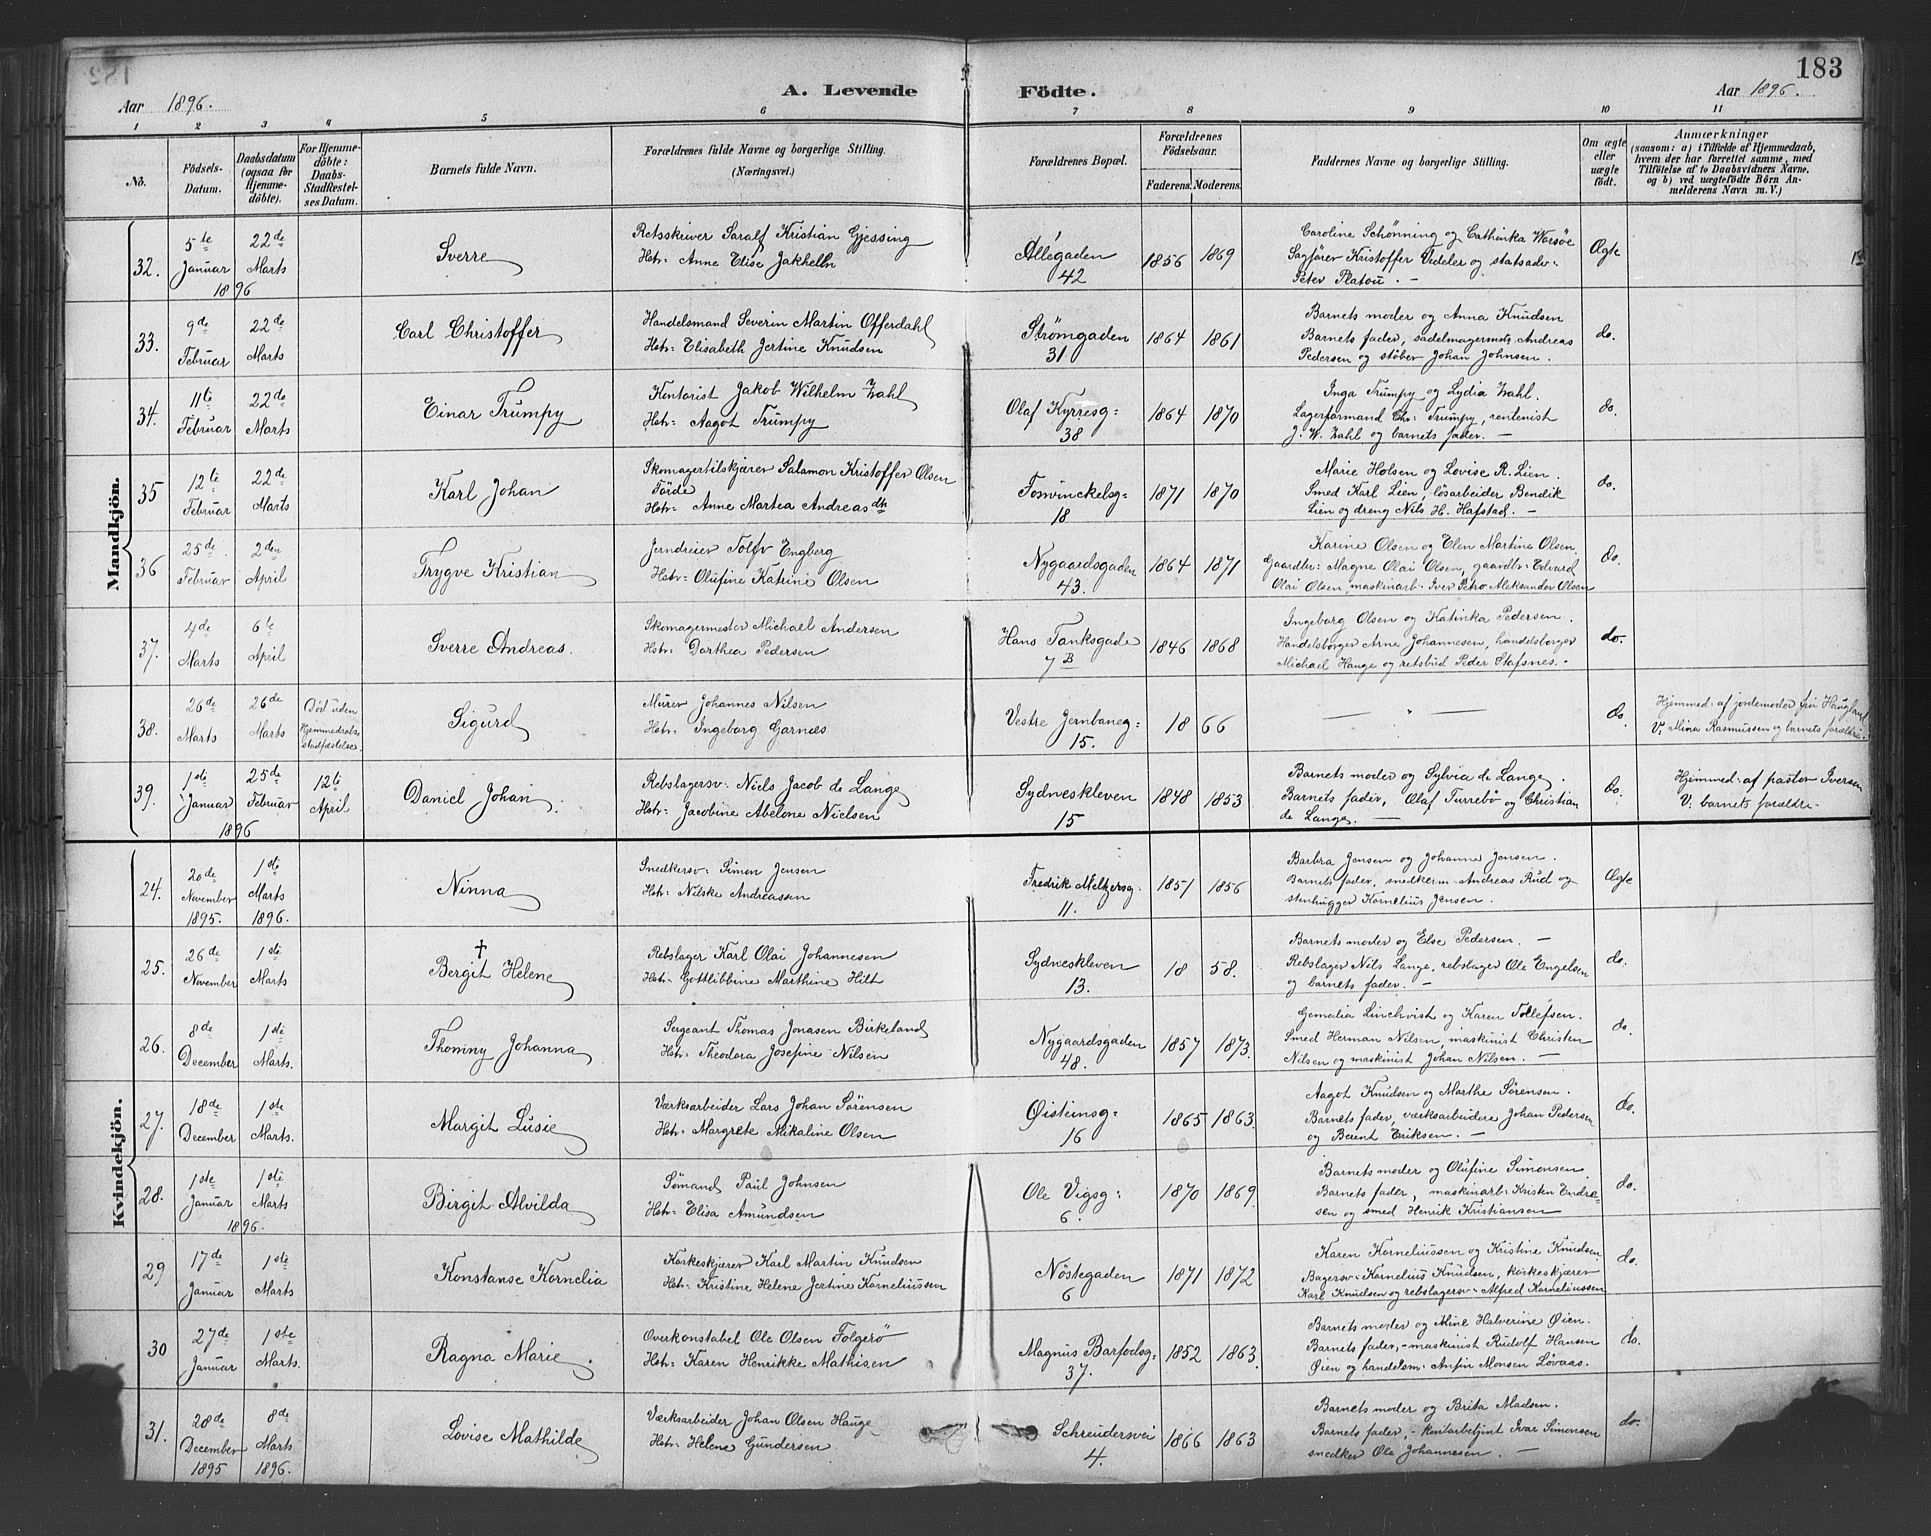 183
Aar 1896.
A. Levende Födte.
Aar 1896.
1 2 3 4 5 6 7 8 9 10 11
No.
Födsels-
Datum.
Daabsdatum
(ogsaa for
Hjemme-
döbte).
For Hjemme-
döbte:
Daabs-
Stadfæstel-
ses Datum.
Barnets fulde Navn.
Forældrenes fulde Navne og borgerlige Stilling.
(Næringsvei.)
Forældrenes Bopæl.
Forældrenes
Födselsaar.
Faderens. Moderens.
Faddernes Navne og borgerlige Stilling.
Om ægte
eller
uægte
födt.
Anmærkninger
(saasom: a) i Tilfælde af Hjemmedaab,
hvem der har forrettet samme, med
Tilföielse af to Daabsvidners Navne,
og b) ved uægtefödte Börn An-
melderens Navn m. V.)
Mandkjön.
32.
5te
Januar
1896
22de
Marts
Sverre
Retsskriver Saralf Kristian Gjessing
Hstr: Anne Elise Jakhelln
Allégaden
42
1856 1869
Caroline Schønning og Cathinka Worsøe
Sagfører Kristoffer Vedeler og statsadv:
Peter Platou. -
Ægte
33.
9de
Februar
22de
Marts
Carl Christoffer
Handelsmand Severin Martin Offerdahl
Hstr: Elisabeth Jertine Knudsen
Strømgaden
31
1864 1861
Barnets moder og Anna Knudsen
Barnets fader, sadelmagermstr Andreas
Pedersen og støber Johan Johnsen.
do.
34.
11te
Februar
22de
Marts
Einar Trumpy
Kontorist Jakob Wilhelm Zahl
Hstr: Aagot Trumpy
Olaf Kyrresg:
38
1864 1870
Inga Trumpy og Lydia Zahl.
Lagerformand Chr: Trumpy, rentenist
J. W. Zahl og barnets fader. -
do.
35
12te
Februar
22de
Marts
Karl Johan
Skomagertilskjærer Salamon Kristoffer Olsen
Førde
Hstr: Anne Martea Andreasdtr
Fosvinckelsg:
18
1871 1870
Marie Holsen og Lovise R. Lien.
Smed Karl Lien, løsarbeider Bendik
Lien og dreng Nils H. Hafstad. -
do.
36
25de
Februar
2den
April
Trygve Kristian
Jerndreier Tolfv Engberg
Hstr: Olufine Katrine Olsen
Nygaardsgaden
43.
1864 1871
Karine Olsen og Elen Martine Olsen.
Gaardbr: Magne Olai Olsen, gaardbr: Edvard
Olai Olsen, maskinarb: Iver Petro Aleksander Olsen
do.
37.
4de
Marts
6te
April
Sverre Andreas.
Skomagermester Michael Andersen
Hstr: Dorthea Pedersen
Hans Tanksgade
7B
1846 1868
Ingeborg Olsen og Katinka Pedersen.
Handelsborger Arne Johannesen, handelsborger
Michael Hauge og retsbud Peder Stafsnes. -
do.
38.
26de
Marts
26de
Marts
Død uden
Hjemmedaabs-
stadfæstelse.
Sigurd
Murer Johannes Nilsen
Hstr: Ingeborg Garnæs
Vestre Jernbaneg:
15.
1866
— " —
do.
Hjemmed: af jordemoder fru Haugland
V. Mina Rasmussen og barnets forældre.
39.
1ste
Januar
1896
25de
Februar
12te
April
Daniel Johan
Rebslagersv: Niels Jacob de Lange
Hstr: Jacobine Abelone Nielsen
Sydneskleven
15
1848 1853
Barnets moder og Sylvia de Lange.
Barnets fader, Olaf Turrebö og Christian
de Lange. —
do.
Hjemmed: af pastor Iversen
V: barnets forældre -
Kvindekjön.
24.
20de
November
1895.
1ste
Marts
1896.
Ninna
Snedkersv: Simon Jensen
Hstr: Nilske Andreassen
Fredrik Meltzersg.
11.
1851 1856
Barbra Jensen og Johanne Jensen.
Barnets fader, snedkerm: Andreas Rud og
stenhugger Kornelius Jensen.
Ægte
25.
26de
November
1ste
Marts
†
Bergit Helene
Rebslager Karl Olai Johannesen
Hstr: Gottlibbine Marthine Hilt
Sydneskleven
13.
1858.
Barnets moder og Else Pedersen. -
Rebslager Nils Lange, rebslager Ole Engelsen
og barnets fader. -
do.
26.
8de
December
1ste
Marts.
Thommy Johanna
Sergeant Thomas Jonasen Birkeland
Hstr: Theodora Josefine Nilsen
Nygaardsgaden
48.
1857 1873.
Gemalia Lindkvist og Karen Tollefsen.
Smed Herman Nilsen, maskinist Christen
Nilsen og maskinist Johan Nilsen. —
do.
27.
18de
December
1ste
Marts.
Margit Lusie
Værksarbeider Lars Johan Sørensen
Hstr: Margrete Mikaline Olsen
Øisteinsg:
16
1865 1863.
Aagot Knudsen og Marthe Sørensen.
Barnets fader, værksarbeidere Johan Pedersen
og Berent Eriksen. -
do.
28.
1ste
Januar
1896.
1ste
Marts
Birgit Alvilda
Sømand Paul Johnsen
Hstr: Elisa Amundsen
Ole Vigsg:
6.
1870 1869.
Barnets moder og Olufine Simonsen
Barnets fader, maskinarb: Kristen Endre-
sen og smed Henrik Kristiansen
do.
29
17de
Januar
1ste
Marts
Konstanse Kornelia
Korkeskjærer Karl Martin Knudsen
Hstr: Kristine Helene Jertine Korneliussen
Nöstegaden
6
1871 1872
Karen Korneliussen og Kristine Knudsen
Bagersv: Kornelius Knudsen, korkeskjærer
Karl Knudsen og rebslagersv: Alfred Korneliussen
do.
30
27de
Januar
1ste
Marts.
Ragna Marie.
Overkonstabel Ole Olsen Folgerö
Hstr: Karen Henrikke Mathisen
Magnus Barfodsg:
37.
1852 1863.
Barnets moder og Mine Halverine Øien.
Barnets fader, - maskinist Rudolf Hansen
Øien og handelsm: Anfin Monsen Løvaas.
do.
31.
28de
December
1895
8de
Marts
1896.
Lovise Mathilde
Værksarbeider Johan Olsen Hauge
Hstr: Helene Gundersen
Schreudersvei
4.
1866 1863
Barnets moder og Brita Madsen.
Barnets fader, - kontorbetjent Ivar Simonsen
snedker Ole Johannesen. —
do.